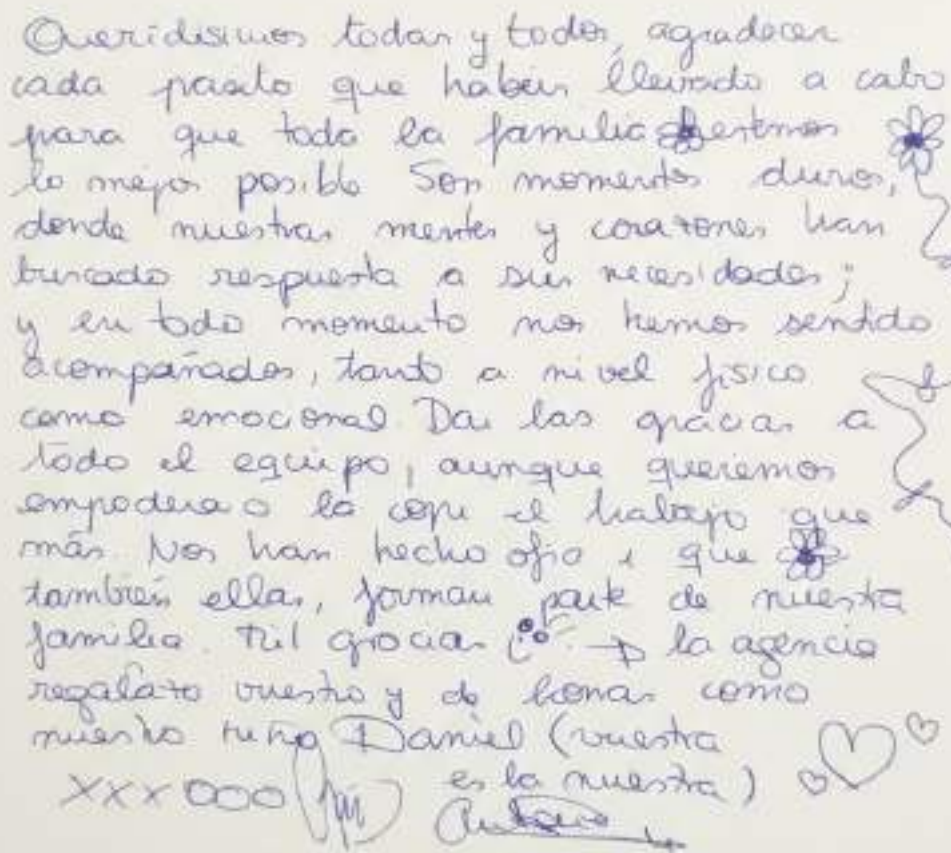 Queridisimos todas y todos, agradecer
cada pasito que habéis llevado a cabo
para que toda la familia estemos
lo mejor posible Son momentos duros,
donde nuestras mentes y corazones han
buscado respuesta a sus necesidades;
y en todo momento nos hemos sentido
acompañados, tanto a nivel físico
como emocional. Dar las gracias a
todo el equipo, aunque queremos
el trabajo que
más. Nos han hecho que
también ellas, forman parte de nuestra
familia. Mil gracias la agencia
vuestro y de como
nuestro Daniel (vuestra
es la nuestra)
XXX OOO